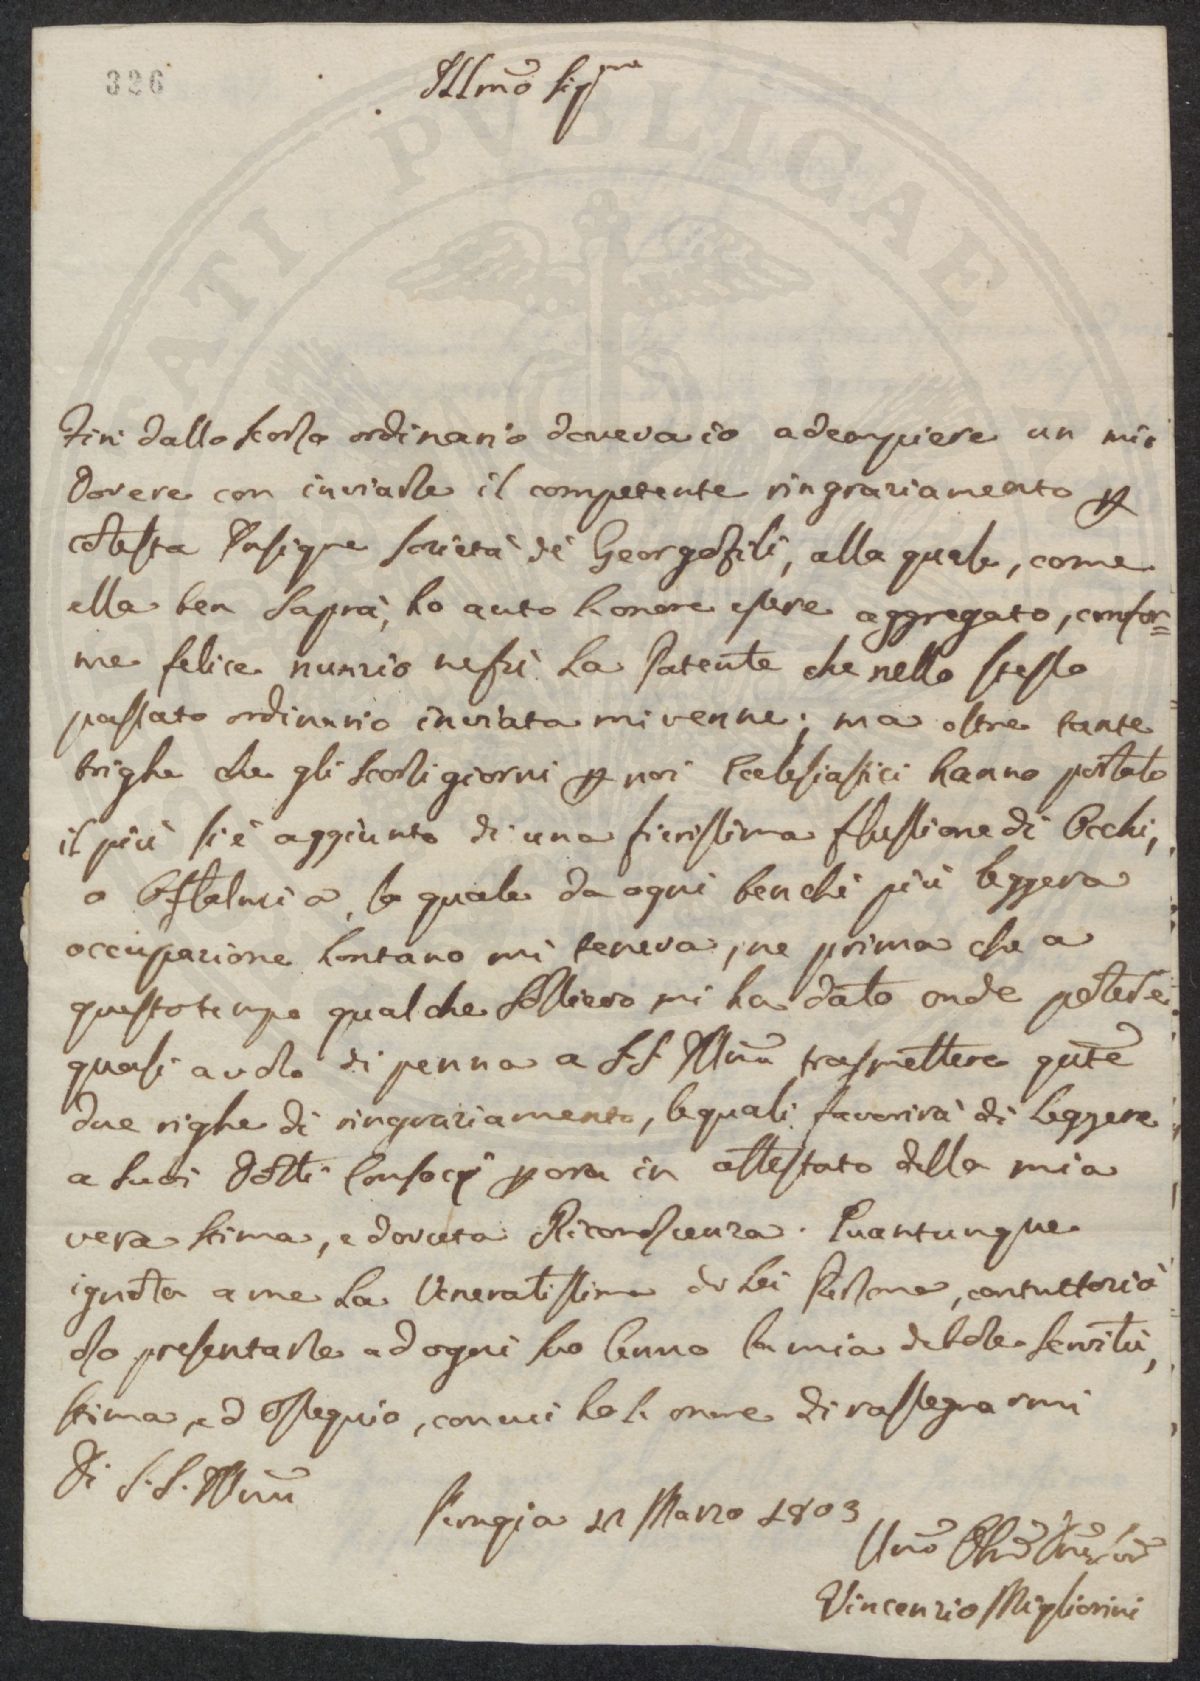 326
Illmo Sigre
Fin dallo scorso ordinario doveva io adempiere un mio
Dovere con inviarle il competente ringraziamento p
cotesta Insigne Società di Georgofili, alla quale, come
ella ben saprà, ho auto l'onore essere aggregato, confor=
me felice nunzio ne fù la Patente che nello stesso
passato ordinario inviata mi venne; ma oltre tante
brighe che gli scorsi giorni p noi Eclesiastici hanno portato
il più si è aggiunto di una fierissima flussione di Occhi,
o Oftalmia, la quale da ogni benchè più leggera
occupazione lontano mi teneva, ne prima che a
questo tempo qualche sollievo mi ha dato onde potere
quasi a volo di penna a S.S. Illma trasmettere queste
due righe di ringraziamento, le quali favorirà di leggere
a suoi Dotti Consocj p ora in attestato della mia
vera stima, e dovuta Riconoscienza. Quantunque
ignota a me la Veneratissima di Lei Persona, contuttociò
oso presentarle ad ogni suo Cenno la mia debole servitù,
stima, ed Ossequio, con cui ho l'onore di rassegnarmi
Di S.S. Illma
Perugia Marzo 1803
Vincenzio Migliorini
PUBLICAE